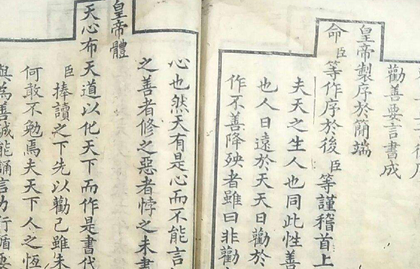 勸善要言書成
皇帝製序於簡端
命臣等作序於後臣等謹稽首上
夫天之生人也同此性善
也人日遠於天天日勸於
作不善降殃者雖曰非勸
心也然天有是心而不能言
之善者修之惡者悖之未
皇帝體
天心布天道以化天下而作是書代
臣捧讀之下先以勸己雖未
何敢不勉焉夫天下人之恆
為善誠能誦言力行